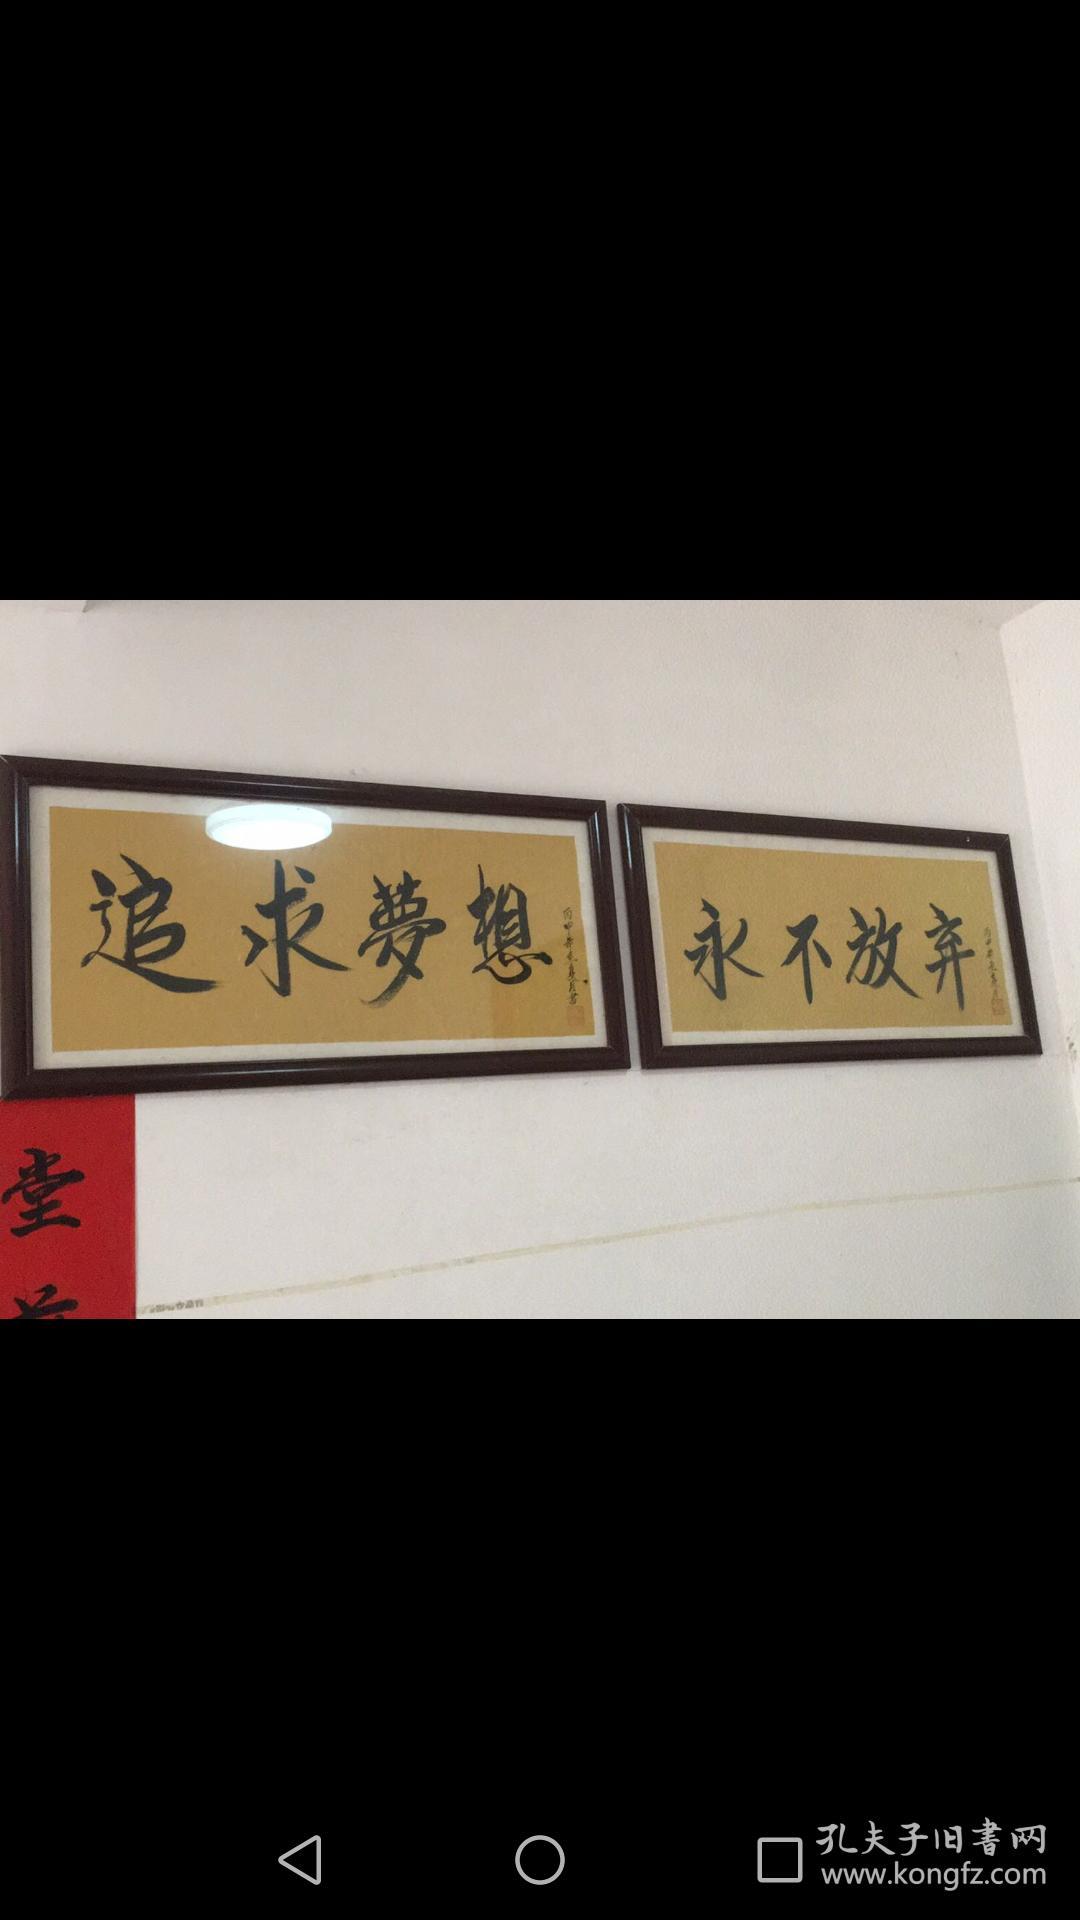 追求夢想
永不放弃
堂
孔夫子旧書网
www.kongfz.com